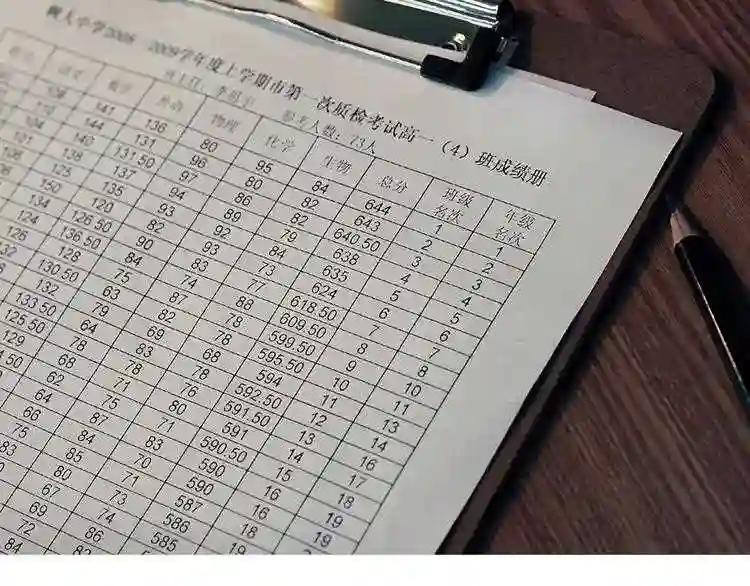 树人中学2008—2009学年度上学期市第一次质检考试高一（4）班成绩册
班主任: 参考人数: 73人
语文 数学 英语 物理 化学 生物 总分 班级名次 年级名次
108 141 136 80 95 84 644 1 1
110 144 131 96 80 82 643 2 2
104 140 131.50 97 86 82 640.50 3 3
101 138 137 94 89 79 638 4 4
106 125 135 93 92 84 635 5 5
106 150 120 82 93 73 624 6 6
134 126.50 90 83 77 618.50 7 7
124 136.50 84 74 88 609.50 8 8
126 128 75 87 78 599.50 9 10
132 130.50 63 82 78 595.50 10 11
132 79 69 68 594 11 13
133.50 64 83 78 592.50 12 14
125.50 78 78 76 591.50 13 16
129 68 71 80 591 14 17
62 75 71 590.50 15 18
64 87 83 590 16 19
66 84 70 590 16 19
75 85 71 587 18
83 80 73 586 19
67 74 585
69
72 86
84